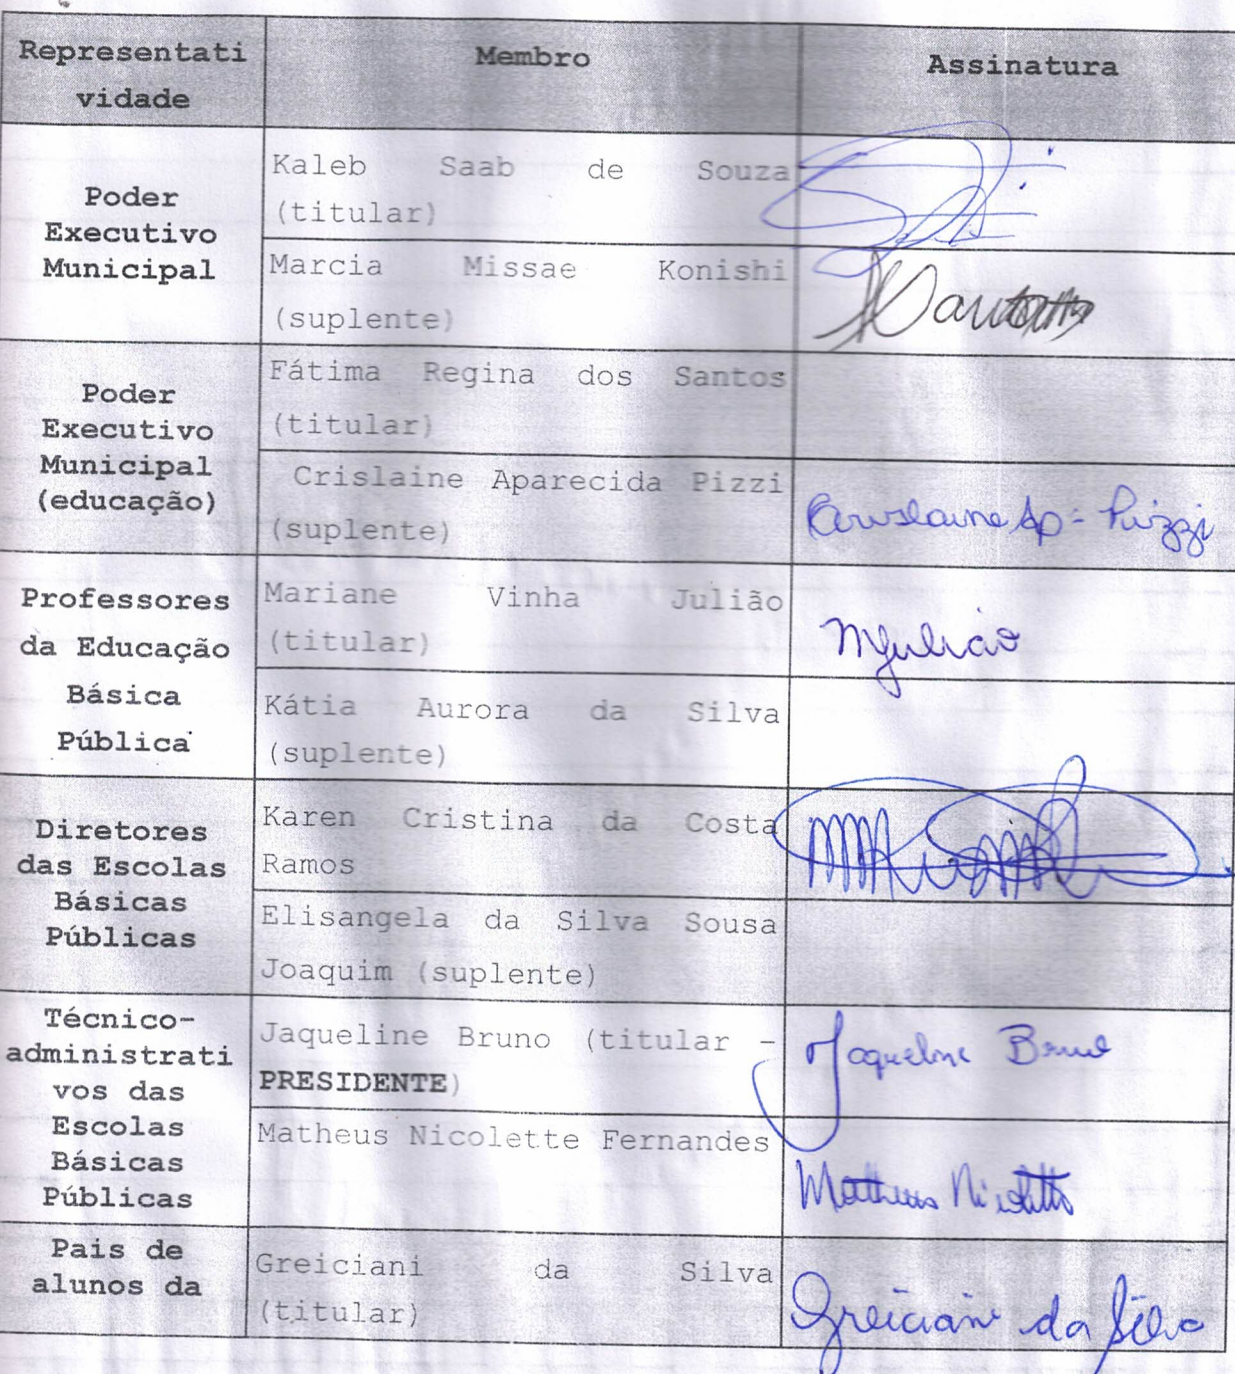 Representati
vidade
Membro
Assinatura
Poder
Executivo
Municipal
Kaleb Saab de Souza
(titular)
Marcia Missae Konishi
(suplente)
Poder
Executivo
Municipal
(educação)
Fátima Regina dos Santos
(titular)
Crislaine Aparecida Pizzi
(suplente)
Crislaine Ap. Pizzi
Professores
da Educação
Básica
Pública
Mariane Vinha Julião
(titular)
MJulião
Kátia Aurora da Silva
(suplente)
Diretores
das Escolas
Básicas
Públicas
Karen Cristina da Costa
Ramos
Elisangela da Silva Sousa
Joaquim (suplente)
Técnico-
administrati
vos das
Escolas
Básicas
Públicas
Jaqueline Bruno (titular –
PRESIDENTE)
Jaqueline Bruno
Matheus Nicolette Fernandes
Matheus Nicolette
Pais de
alunos da
Greiciani da Silva
(titular)
Greiciani da Silva